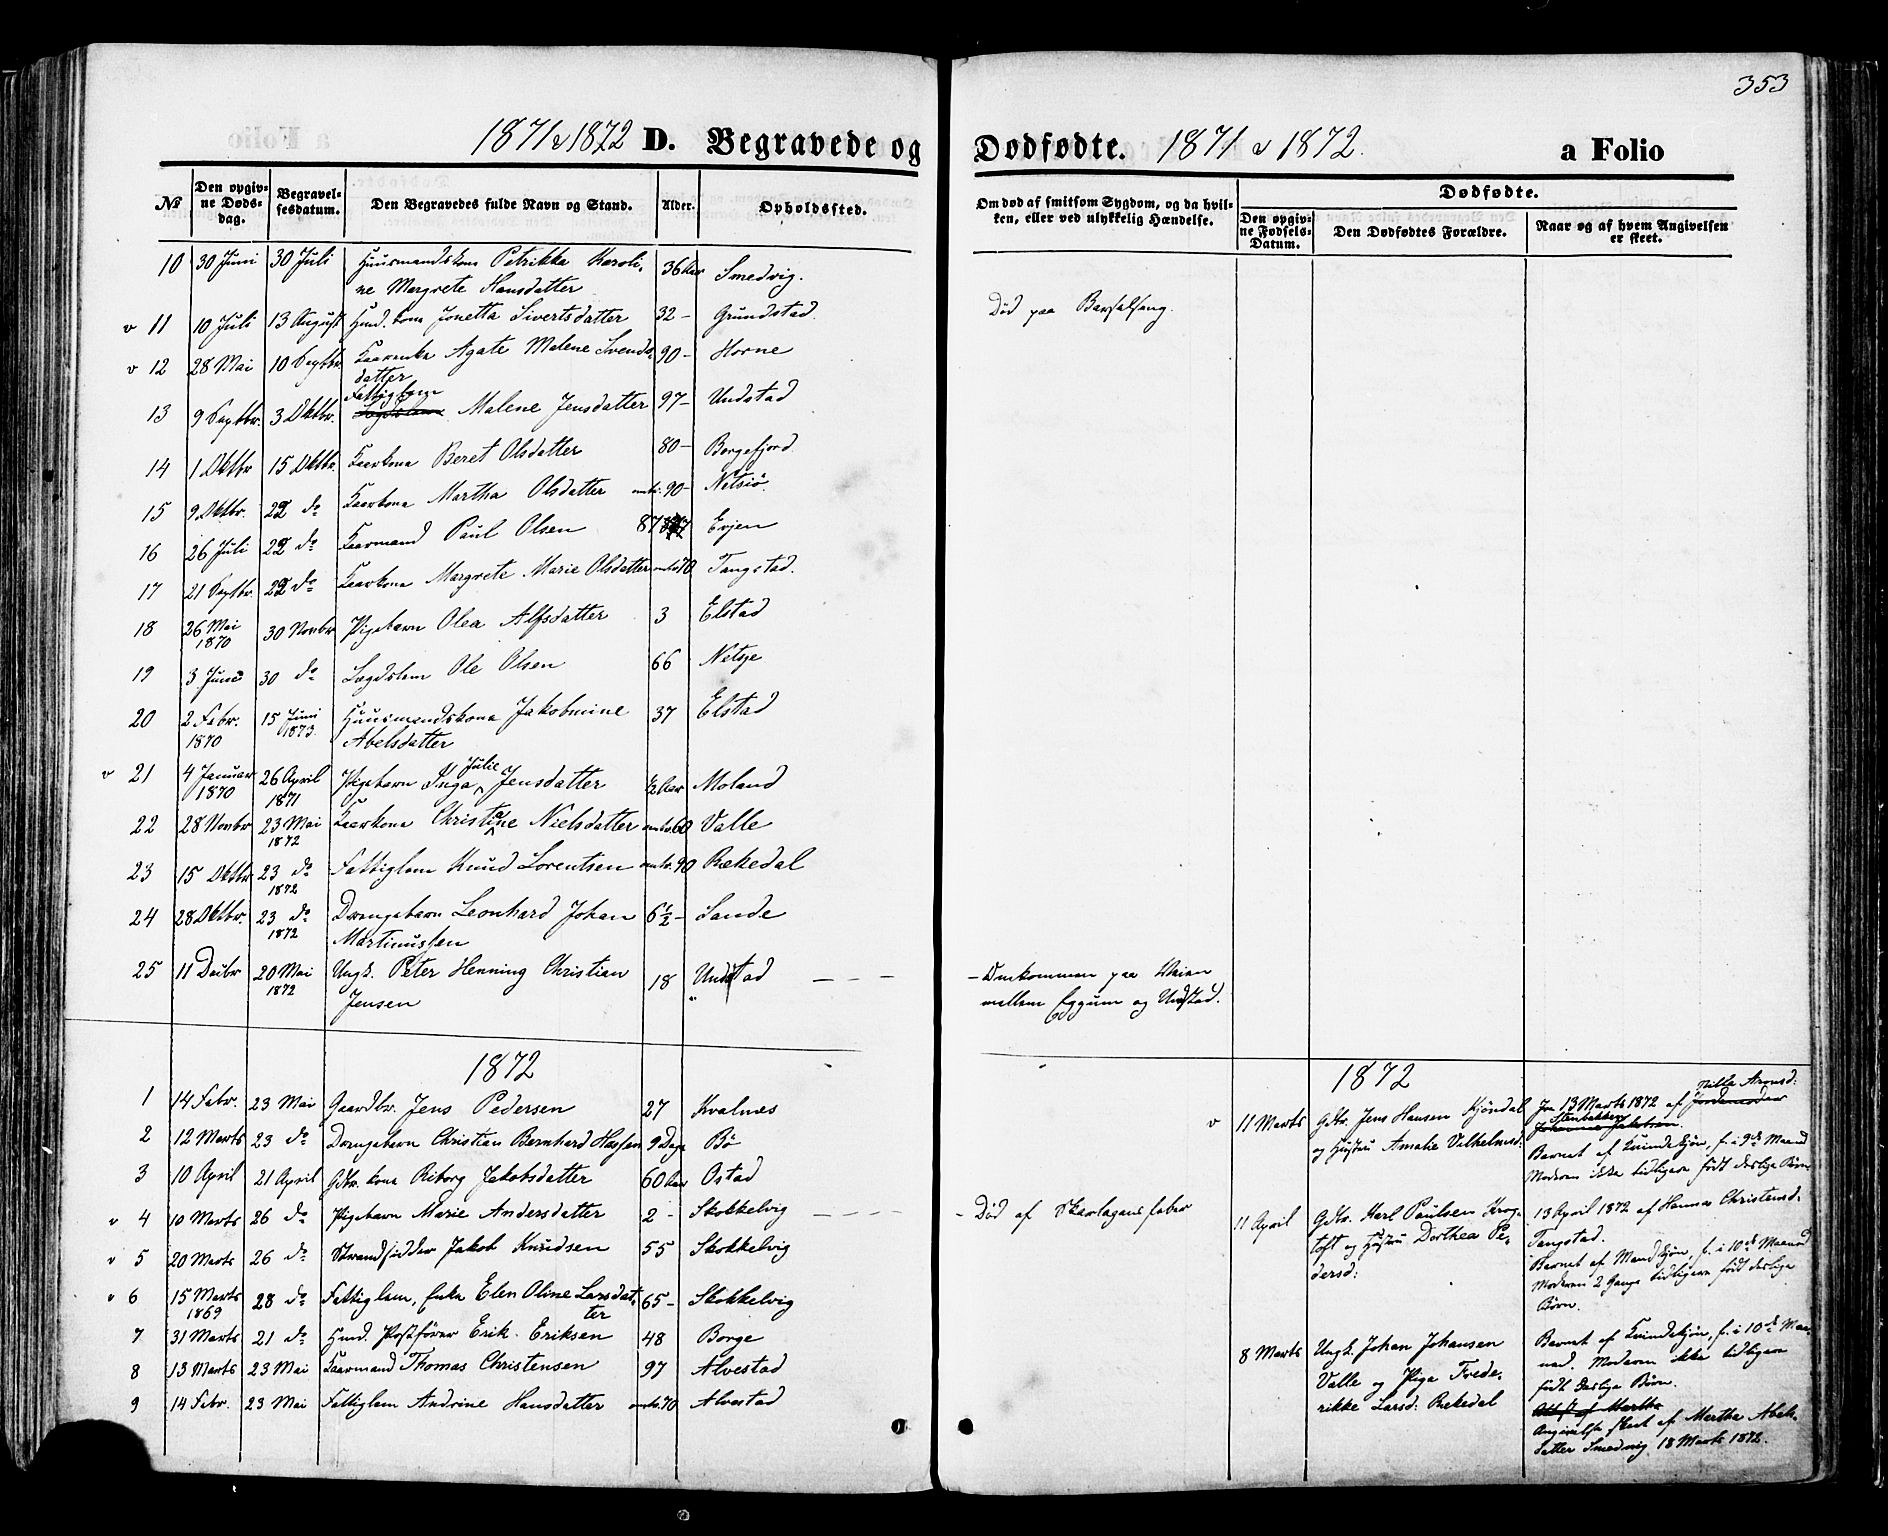 353
1871 & 1872 D. Begravede og Dødfødte. 1871 & 1872. a Folio
№ Den opgivne Dødsdag. Begravelsesdatum. Den Begravedes fulde Navn og Stand. Alder. Opholdssted.
Om død af smitsom Sygdom, og da hvilken, eller ved ulykkelig Hændelse. Dødfødte. Den opgivne Fødsels-Datum. Den Dødfødtes Forældre. Naar og af hvem Angivelsen er skeet.
10 30 Juni 30 Juli Huusmandskone Petrikka Karoli- 36 Aar Smedvig.
ne Margrete Hansdatter
v 11 10 Juli 13 August Hmd. kone Jonetta Sivertsdatter 32 - Grundstad. Død paa Barselseng.
v 12 28 Mai 10 Septbr. Kaarenke Agate Malene Svends- 90 - Horne
datter
Fattigkone
13 9 Septbr. 3 Oktbr. Malene Jensdatter 97 - Undstad
14 1 Oktbr 15 Oktbr. Kaarkona Beret Olsdatter 80 - Borgefjord
15 9 Oktbr. 22 do Kaarkona Martha Olsdatter omtr. 90 - Netsiø.
16 26 Juli 22 do Kaarmand Paul Olsen 87 Evjen
17 21 Septbr 22 do Kaarkona Margrete Marie Olsdatter omtr 70 Tangstad.
18 26 Mai 30 Novbr Pigebarn Olea Alfsdatter 3 Elstad
1870
19 3 Juni 30 do Lægdslem Ole Olsen 66 Netsje
20 2 Febr. 15 Juni Huusmandskona Jakobmine 37 Elstad
1870 1873. Abelsdatter
v 21 4 Januar 26 April Pigebarn Inga Julie Jensdatter ½ Aar Moland
1870 1871
22 28 Novbr 23 Mai Kaarkona Christine Nielsdatter omtr. 60 Valle
1872
23 15 Oktbr 23 do Fattiglem Knud Lorentsen omtr. 90 Rekedal
1872
24 28 Oktbr. 23 do Drengebarn Leonhard Johan 6½ - Sande
1872 Martinussen
25 11 Decbr 20 Mai Ungk. Peter Henning Christian 18 Undstad - Omkommen paa Veien
1872 Jensen mellem Eggum og Undstad.
1872 1872
1 14 Febr. 23 Mai Gaardbr. Jens Pedersen 27 Kvalnes
2 12 Marts 23 do Drengebarn Christian Bernhard Hansen 9 Dage Bø
3 10 April 21 April Gdbr. kone Riborg Jakobsdatter 60 Aar Ostad
v 4 10 Marts 26 do Pigebarn Marie Andersdatter 2 - Skokkelvig - Død af Skarlagensfeber
v 5 20 Marts 26 do Strandsidder Jakob Knudsen 55 Skokkelvig
v 6 15 Marts 28 do Fattiglem, Enke Elen Oline Larsdat- 65 - Skokkelvig
1869 ter
7 31 Marts 21 do Hmd. Postfører Erik Eriksen 48 Borge
8 13 Marts 23 Mai Kaarmand Thomas Christensen 97 Alvestad
9 14 Febr. 23 Mai Fattiglem Andrine Hansdatter omtr. 70 Alvestad
v 11 Marts Gdbr. Jens Hansen Kjøndal
og Hustru Amalie Vilhelmsd.
13 Marts 1872 af
Barnet af Kvindekjøn, f. i 9de Maaned
Moderen ikke tidligere født deslige Børn
11 April Gdbr. Karl Paulsen Krog-
toft og Hustru Dorthea Pe-
dersd:
13 April 1872 af Hannas Christensd.
Tangstad.
Barnet af Mandkjøn, f. i 10de Maaned
Moderen 2 Gange tidligere født deslige
Børn.
8 Marts Ungk. Johan Johansen
Valle og Pige Frede-
rikke Larsd: Rekedal
Barnet af Kvindekjøn, f. i 10de Maa-
ned. Moderen ikke tidligere
født deslige Børn.
Angivelse skeet af Martha Abels-
datter Smedvig 18 Marts 1872.